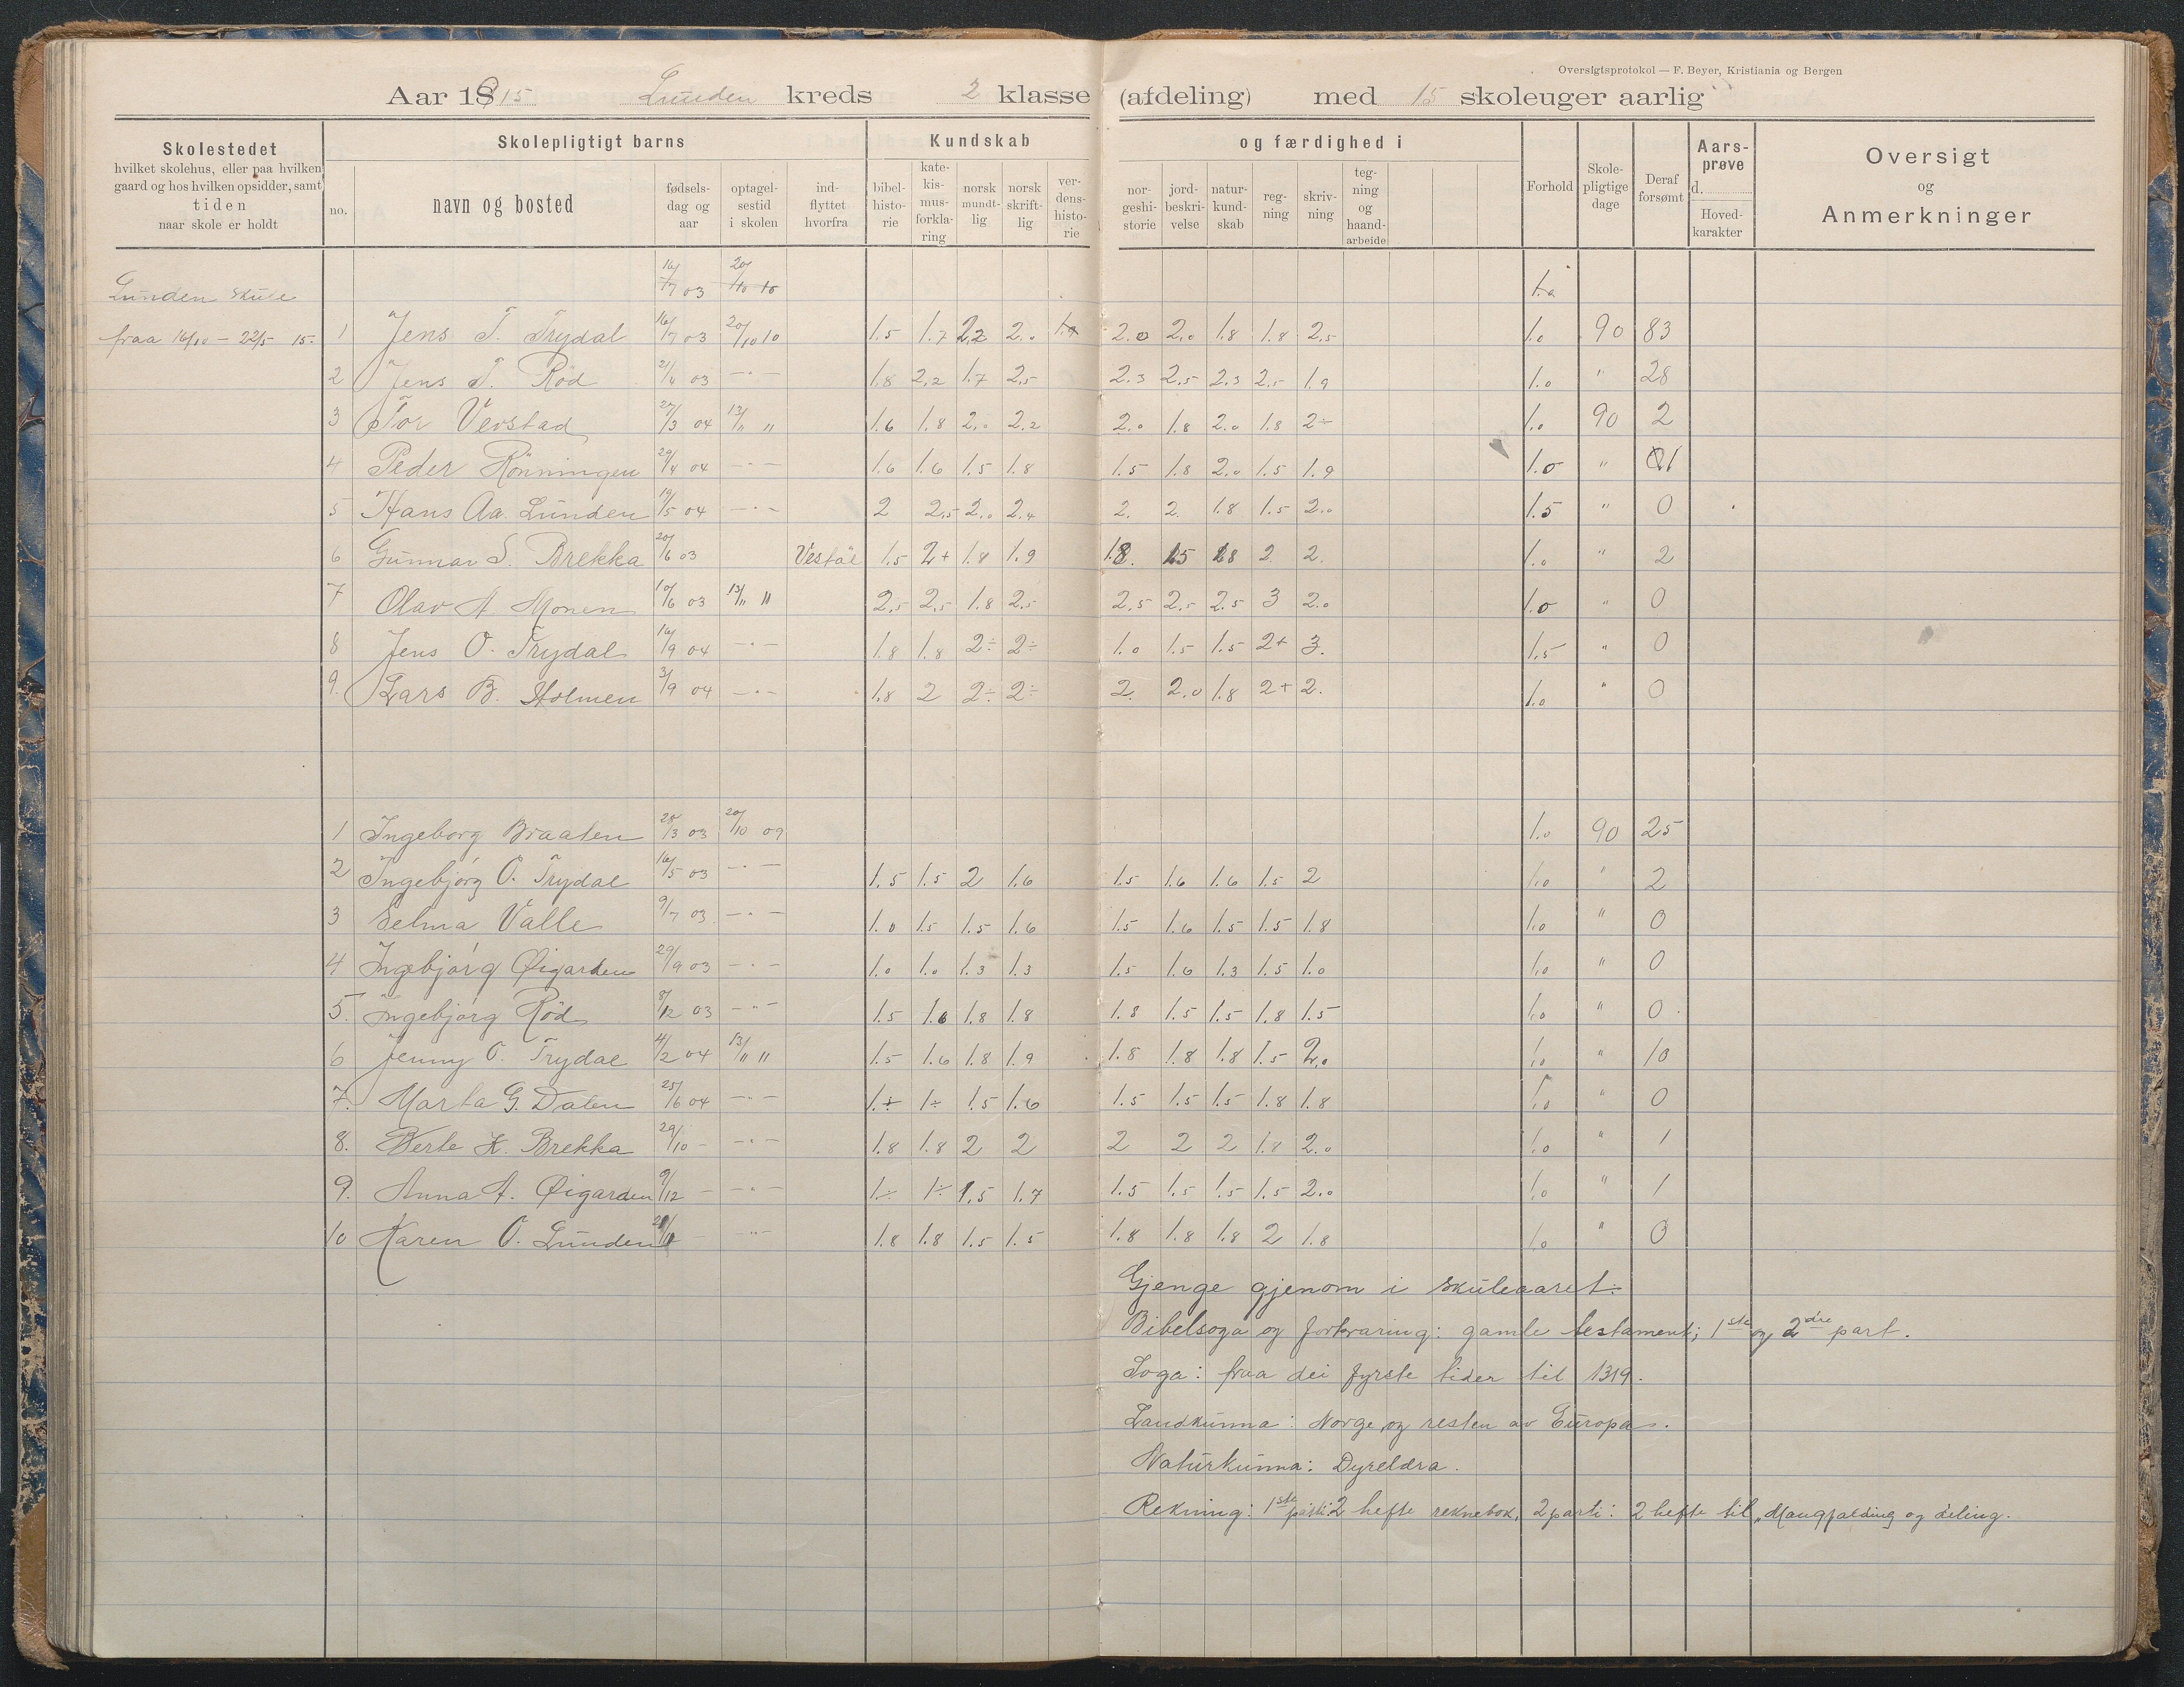 Oversigtsprotokol — F. Beyer, Kristiania og Bergen
Aar 1915 Lunden kreds 2 klasse (afdeling) med 15 skoleuger aarlig
Skolestedet
hvilket skolehus, eller paa hvilken
gaard og hos hvilken opsidder, samt
tiden
naar skole er holdt
Skolepligtigt barns
no.
navn og bosted
fødsels-
dag og
aar
optagel-
sestid
i skolen
ind-
flyttet
hvorfra
Kundskab og færdighed i
bibel-
histo-
rie
kate-
kis-
mus-
forkla-
ring
norsk
mundt-
lig
norsk
skrift-
lig
ver-
dens-
histo-
rie
nor-
geshi-
storie
jord-
beskri-
velse
natur-
kund-
skab
reg-
ning
skriv-
ning
teg-
ning
og
haand-
arbeide
Forhold
Skole-
pligtige
dage
Deraf
forsømt
Aars-
prøve
d.
Hoved-
karakter
Oversigt
og
Anmerkninger
Lunden skule 16/7 03 20/10 10
fraa 16/10 – 22/5 15. 1 Jens T. Trydal 16/7 03 20/10 10 1.5 1.7 2,2 2.0 2.0 2.0 1.8 1.8 2.5 1.0 90 83
2 Jens T. Röd 21/4 03 –"– 1.8 2,2 1.7 2,5 2.3 2.5 2.3 2.5 1.9 1.0 " 28
3 Tor Verstad 27/3 04 13/11 11 1.6 1.8 2.0 2.2 2.0 1.8 2.0 1.8 2÷ 1.0 90 2
4 Peder Rönningen 29/4 04 –"– 1.6 1.6 1.5 1.8 1.5 1.8 2.0 1.5 1.9 1.0 "
5 Hans Aa. Lunden 19/5 04 –"– 2 2,5 2.0 2.4 2. 2. 1.8 1.5 2.0 1.5 " 0
6 Gunnar S. Brekka 20/6 03 Vestöl 1.5 2+ 1.8 1.9 1.8. 1.5 1.8 2 2. 1.0 " 2
7 Olav A. Monen 10/6 03 13/11 11 2,5 2,5 1.8 2.5 2.5 2.5 2.5 3 2.0 1.0 " 0
8 Jens O. Trydal 16/9 04 –"– 1.8 1.8 2÷ 2÷ 1.0 1.5 1.5 2+ 3. 1.5 " 0
9. Lars B. Holmen 3/9 04 –"– 1.8 2 2÷ 2÷ 2. 2.0 1.8 2+ 2. 1.0 " 0
1 Ingeborg Braaten 25/3 03 20/10 09 1.0 90 25
2 Ingebjörg O. Trydal 16/5 03 –"– 1.5 1.5 2 1.6 1.5 1.6 1.6 1.5 2 1.0 " 2
3 Selma Valle 9/7 03 –"– 1.0 1.5 1.5 1.6 1.5 1.6 1.5 1.5 1.8 1.0 " 0
4 Ingebjörg Øigarden 29/9 03 –"– 1.0 1.0 1.3 1.3 1.5 1.6 1.3 1.5 1.0 1.0 " 0
5. Ingebjörg Röd 8/12 03 –"– 1.5 1.6 1.8 1.8 1.8 1.5 1.5 1.8 1.5 1.0 " 0
6 Jenny O. Trydal 4/2 04 13/11 11 1.5 1.6 1.8 1.9 1.8 1.8 1.8 1.5 2,0 1.0 " 10
7. Marta G. Dalen 25/6 04 –"– 1.÷ 1÷ 1.5 1.6 1.5 1.5 1.5 1.8 1.8 1.0 " 0
8. Berte K. Brekka 29/10 – –"– 1.8 1.8 2 2 2 2 2 1.8 2.0 1.0 " 1
9. Anna A. Øigarden 9/12 – –"– 1÷ 1÷ 1.5 1.7 1.5 1.5 1.5 1.5 2.0 1.0 " 1
10 Karen O. Lunden – –"– 1.8 1.8 1.5 1.5 1.8 1.8 1.8 2 1.8 1.0 " 0
Gjenge gjenom i skuleaaret:
Bibelsoga og forkraring: gamle testament; 1ste og 2dre part.
Soga: fraa dei fyrste tider til 1319.
Landkunna: Norge og resten av Europa.
Naturkunna: Dyreldra.
Rekning: 1ste parti: 2 hefte reknebok, 2 parti: 2 hefte til „Mangfalding og deling.